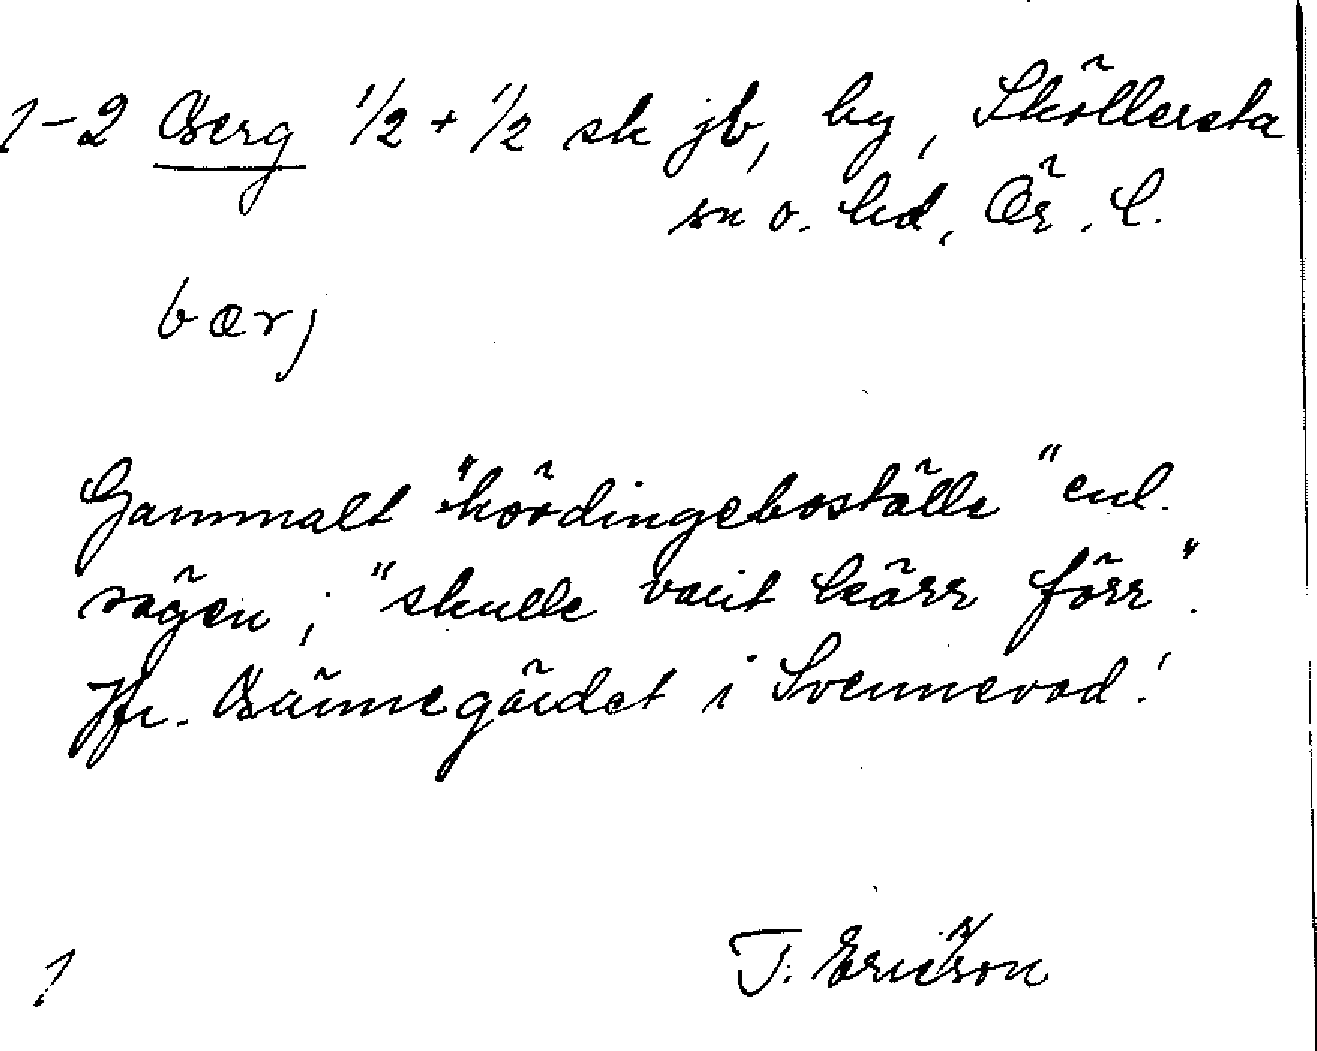 1-2 Berg 1/2 + 1/2 sk jb, by, Sköllersta
sn o. hd, Ör. l.
bærj
Gammalt "hövdingeboställe" enl.
sägen; "skulle varit förr".
Jfr. i Svennevad!
1 T. Ericsson